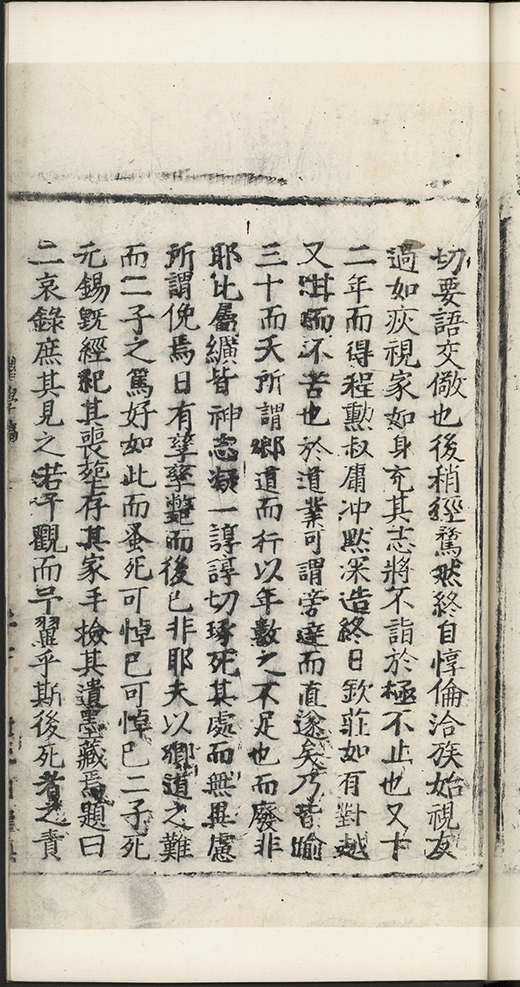 切要語交儆也後稍經騖然終自惇倫洽族始視友
過如疚視家如身充其志將不詣於極不止也又十
二年而得程勲叔庸冲黙深造終日欽莊如有對越
又甘而不苦也於道業可謂旁達而直遂矣乃皆踰
三十而夭所謂鄉道而行以年數之不足也而廢非
耶比屬纊皆神志凝一諄諄切琢死其處而無異慮
所謂俛焉日有孳孳斃而後已非耶夫以鄉道之難
而二子之篤好如此而蚤死可悼已可悼已二子死
元錫旣經紀其喪葬存其家手檢其遺墨藏焉題曰
二哀錄庶其見之若平觀而予翼乎斯後死者之責